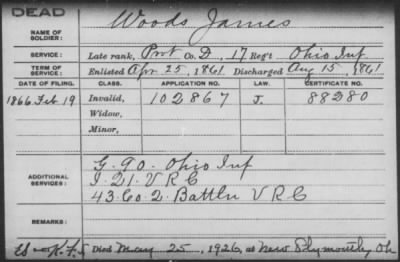 DEAD
Woods James
NAME OF
SOLDIER:
SERVICE: Late rank, Prvt Co. D, 17 Reg't Ohio Inf
TERM OF
SERVICE: Enlisted Apr 25, 1861 Discharged Aug 15, 1861
DATE OF FILING. CLASS. APPLICATION NO. LAW. CERTIFICATE NO.
1866 Feb 19 Invalid, 102867 J. 88280
Widow,
Minor,
G. 90. Ohio Inf
ADDITIONAL
SERVICES: I. 21. V R C
43. Co. 2. Battln V R C
REMARKS:
Died May 25, 1926, at New Plymouth, Oh